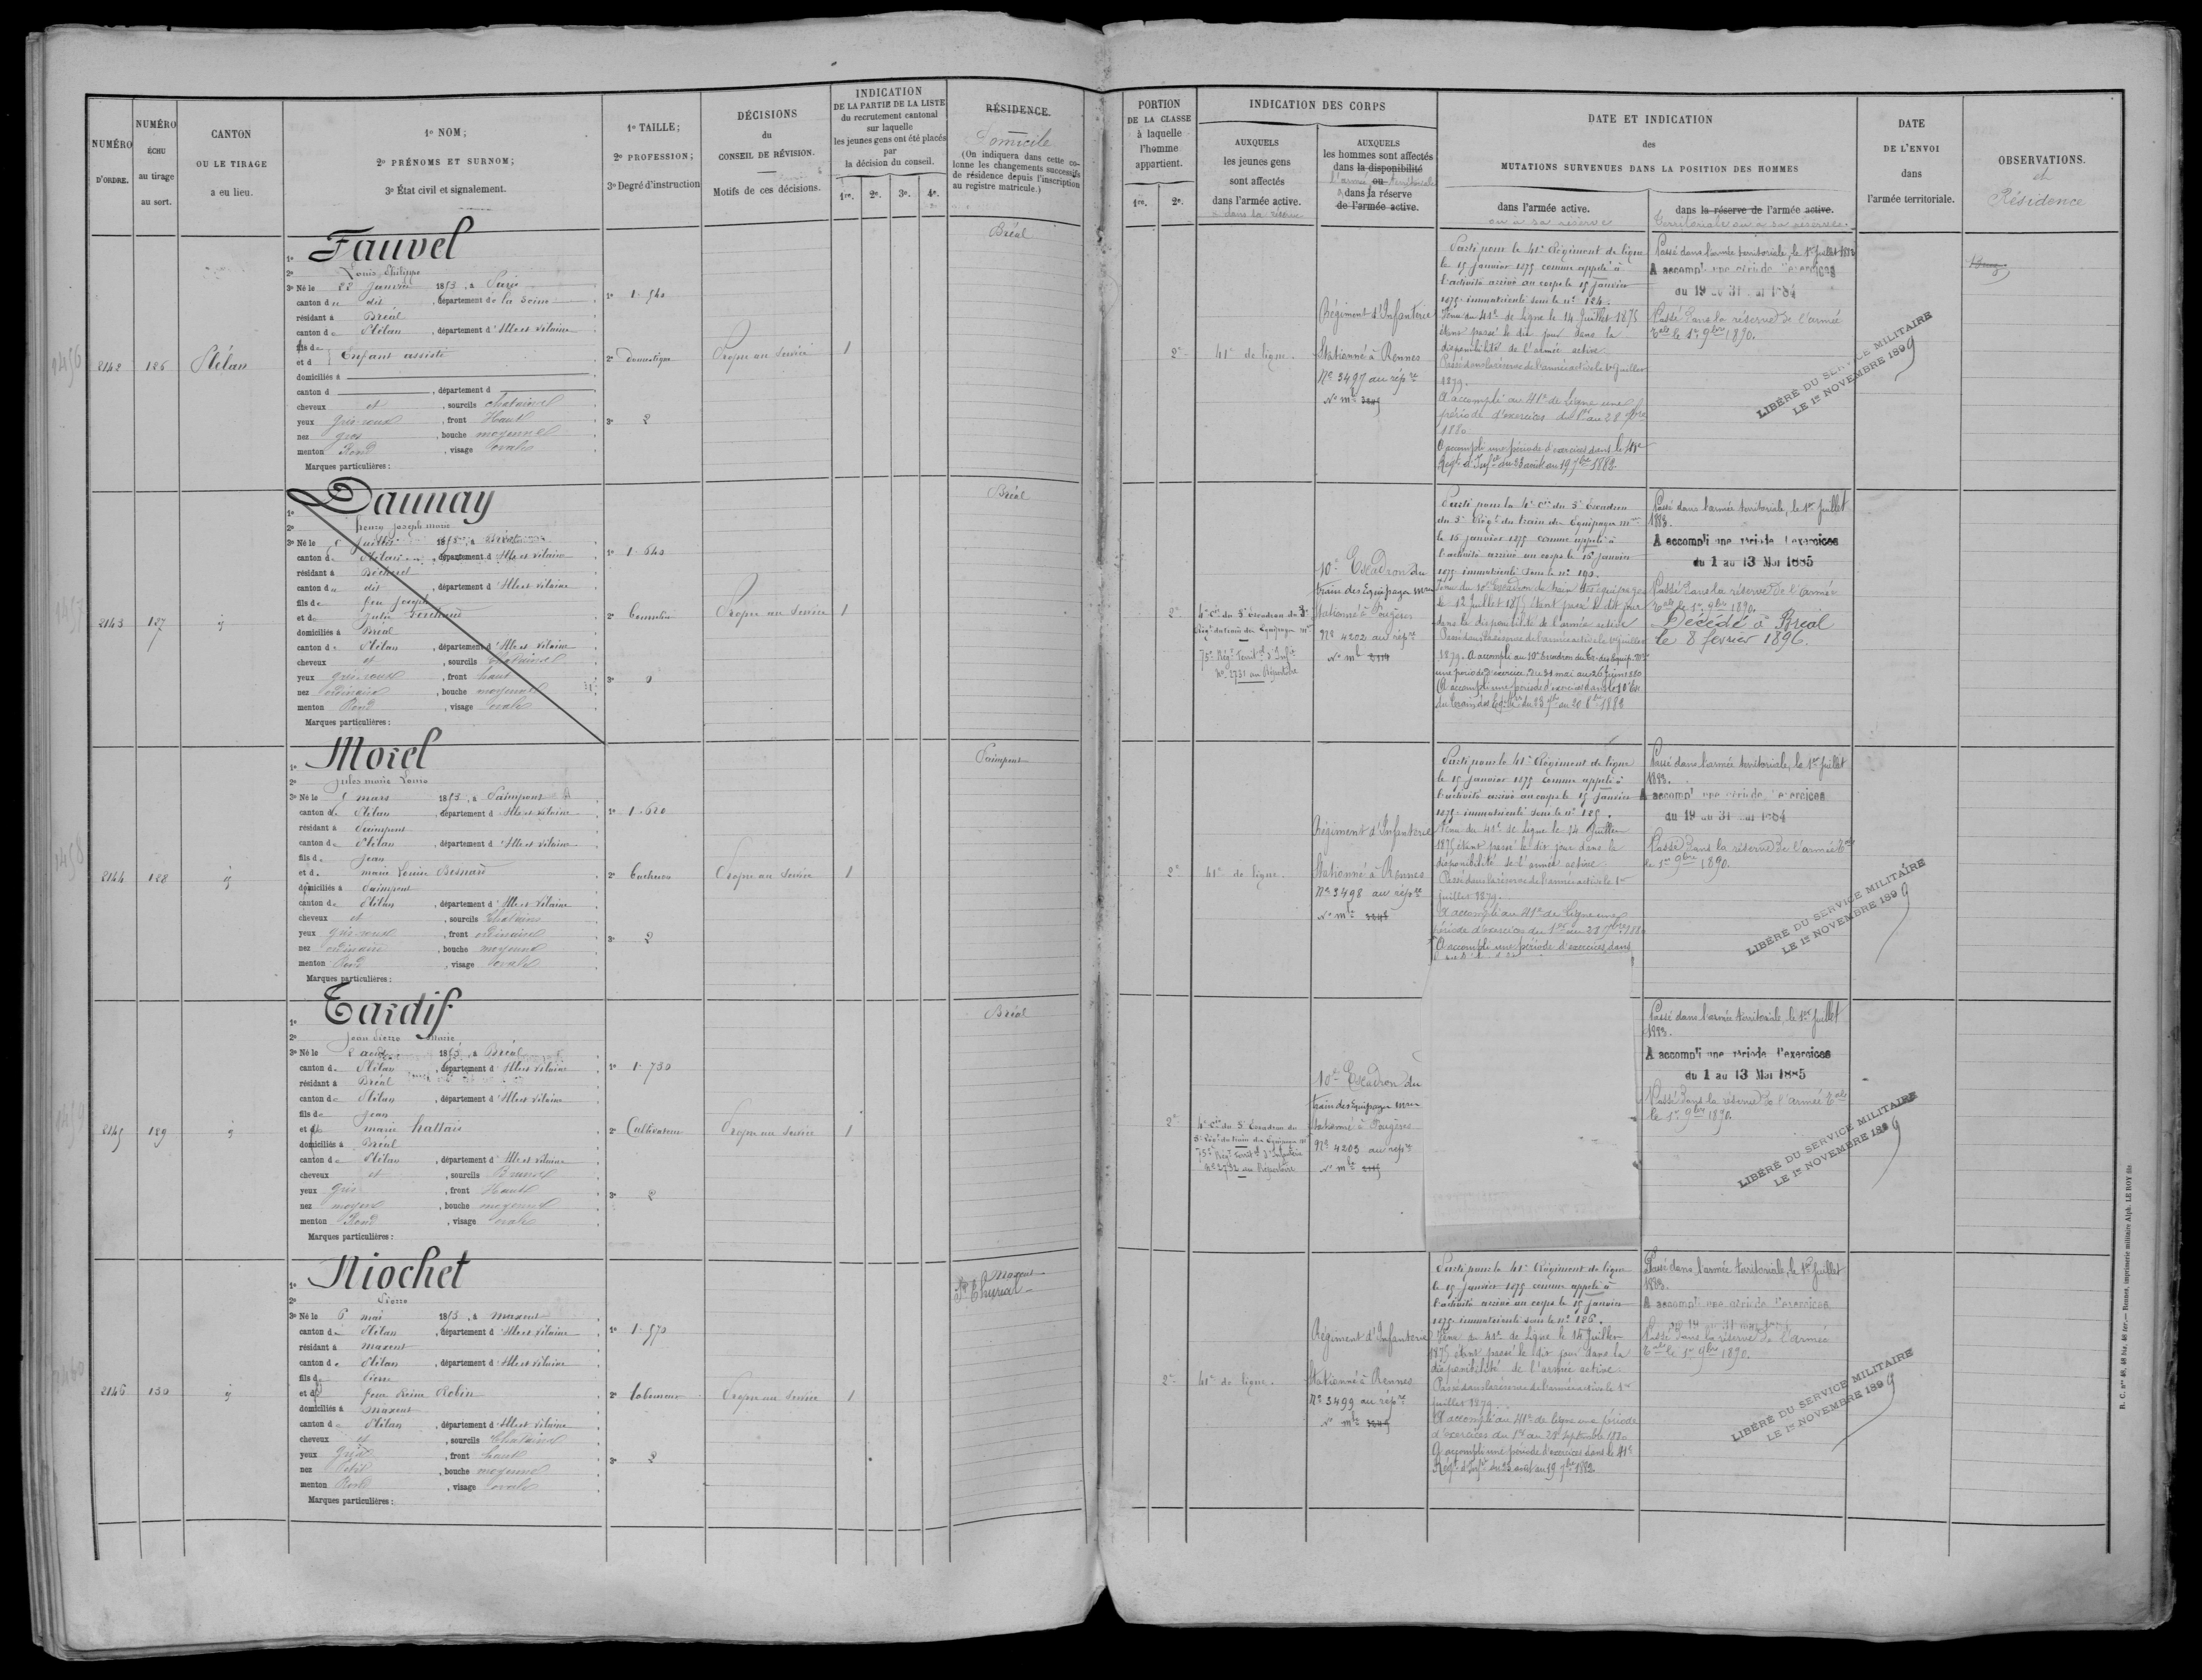 NUMÉRO
D'ORDRE.
NUMÉRO
ÉCHU
au tirage
au sort.
CANTON
OU LE TIRAGE
a eu lieu.
1º NOM;
2º PRÉNOMS ET SURNOM;
3º État civil et signalement.
1º TAILLE;
2º PROFESSION;
3º Degré d'instruction
DÉCISIONS
du
CONSEIL DE RÉVISION.
Motifs de ces décisions.
INDICATION
DE LA PARTIE DE LA LISTE
du recrutement cantonal
sur laquelle
les jeunes gens ont été placés
par
la décision du conseil.
1re. 2e. 3e. 4e.
RÉSIDENCE.
Domicile
(On indiquera dans cette co-
lonne les changements successifs
de résidence depuis l'inscription
au registre matricule.)
2142
126
Plélan
1º Fauvel
2º Louis Philippe
3º Né le 22 janvier 1853, à Paris
canton du dit, département de la Seine
résidant à Bréal
canton de Plélan, département d'Ille et Vilaine
fils de
et d Enfant assisté
domiciliés à
canton d , département d
cheveux et , sourcils chatains
yeux gris-roux, front Haut
nez gros, bouche moyenne
menton Rond, visage ovale
Marques particulières :
1º 1.540
2º Domestique
3º 2
Propre au service
1
Bréal
2143
127
1º Daunay
2º henry joseph marie
3º Né le juillet 1853, à
canton de Plélan, département d'Ille et Vilaine
résidant à Bécherel
canton du dit, département d'Ille et Vilaine
fils de feu Joseph
et de Julie
domiciliés à Bréal
canton de Plélan, département d'Ille et Vilaine
cheveux et , sourcils chatains
yeux gris-roux, front haut
nez ordinaire, bouche moyenne
menton Rond, visage ovale
Marques particulières :
1º 1.640
2º
3º
Propre au service
1
Bréal
2144
128
1º Morel
2º jules marie Louis
3º Né le mars 1853, à Paimpont
canton de Plélan, département d'Ille et Vilaine
résidant à Paimpont
canton de Plélan, département d'Ille et Vilaine
fils de Jean
et de marie Louise Besnard
domiciliés à Paimpont
canton de Plélan, département d'Ille et Vilaine
cheveux et , sourcils chatains
yeux gris-roux, front ordinaire
nez ordinaire, bouche moyenne
menton Rond, visage ovale
Marques particulières :
1º 1.620
2º
3º 2
Propre au service
1
Paimpont
2145
129
1º Tardif
2º Jean Pierre Marie
3º Né le 2 août 1853, à Bréal
canton de Plélan, département d'Ille et Vilaine
résidant à Bréal
canton de Plélan, département d'Ille et Vilaine
fils de Jean
et de marie hattais
domiciliés à Bréal
canton de Plélan, département d'Ille et Vilaine
cheveux et , sourcils Bruns
yeux gris, front Haut
nez moyen, bouche moyenne
menton Rond, visage ovale
Marques particulières :
1º 1.730
2º Cultivateur
3º 2
Propre au service
1
Bréal
2146
130
1º Niochet
2º Pierre
3º Né le 6 mai 1853, à maxent
canton de Plélan, département d'Ille et Vilaine
résidant à maxent
canton de Plélan, département d'Ille et Vilaine
fils de Pierre
et de Jeanne Reine Robin
domiciliés à maxent
canton de Plélan, département d'Ille et Vilaine
cheveux et , sourcils Chatains
yeux gris, front haut
nez Petit, bouche moyenne
menton Rond, visage ovale
Marques particulières :
1º 1.570
2º laboureur
3º 2
Propre au service
1
Maxent
St Thurial
PORTION
DE LA CLASSE
à laquelle
l'homme
appartient.
1re. 2e.
INDICATION DES CORPS
AUXQUELS
les jeunes gens
sont affectés
dans l'armée active.
ou dans la réserve
AUXQUELS
les hommes sont affectés
dans la disponibilité
L'armée ou territoriale
dans la réserve
de l'armée active.
DATE ET INDICATION
des
MUTATIONS SURVENUES DANS LA POSITION DES HOMMES
dans l'armée active.
ou à sa réserve
dans la réserve de l'armée active.
territoriale ou à sa réserve.
DATE
DE L'ENVOI
dans
l'armée territoriale.
OBSERVATIONS.
et
Résidence
2e
41e de ligne.
Régiment d'Infanterie
Stationné à Rennes
Nº 3497 au rép.re
Parti pour le 41e Régiment de ligne
le 15 janvier 1875 comme appelé à
l'activité arrivé au corps le 15 janvier
1875 immatriculé sous le nº 124.
Venu du 41e de ligne le 14 Juillet 1875
étant passé le dit jour dans la
disponibilité de l'armée active.
Passé dans la réserve de l'armée active le 1er juillet
1879.
A accompli au 41e de Ligne une
période d'exercices du 1er au 28 7bre
1880
A accompli une période d'exercices dans le 41e
Régt d'Infie du 23 août au 19 7bre 1882.
Passé dans l'armée territoriale, le 1er juillet 1883
A accompli une période d'exercices
du 19 au 31 mai 1884
Passé dans la réserve de l'armée
tale le 1er 9bre 1890.
LIBÉRÉ DU SERVICE MILITAIRE
LE 1er NOVEMBRE 1899
2e
4e Cie du 5e Escadron du 3e
Régt du train des Equipages mres
75e Régt Territal d'Infie
Nº 2731 au Répertoire
10e Escadron du
train des Equipages mres
Stationné à Fougères
Nº 4202 au rép.re
Parti pour la 4e Cie du 5e Escadron
du 3e Régt du train des Equipages mres
le 15 janvier 1875 comme appelé à
l'activité arrivé au corps le 15 janvier
1875 immatriculé sous le nº 190.
Venu du 10e Escadron du train des équipages
le 12 Juillet 1875 étant passé le dit jour
dans la disponibilité de l'armée active
Passé dans la réserve de l'armée active le 1er juillet
1879. A accompli au 10e Escadron du Tr. des Equip. mres
une période d'exercice du 31 mai au 26 juin 1880
A accompli une période d'exercices dans le 10e Esc
du train des Eq. mres du 23 7bre au 20 8bre 1882
Passé dans l'armée territoriale, le 1er juillet
1883.
A accompli une période d'exercices
du 1 au 13 Mai 1885
Passé dans la réserve de l'armée
tale le 1er 9bre 1890.
Décédé à Bréal
le 8 fevrier 1896.
2e
41e de ligne.
Régiment d'Infanterie
Stationné à Rennes
Nº 3498 au rép.re
Parti pour le 41e Régiment de ligne
le 15 janvier 1875 comme appelé à
l'activité arrivé au corps le 15 janvier
1875 immatriculé sous le nº 125.
Venu du 41e de ligne le 14 Juillet
1875 étant passé le dit jour dans la
disponibilité de l'armée active.
Passé dans la réserve de l'armée active le 1er
juillet 1879.
A accompli au 41e de Ligne une
période d'exercices du 1er au 28 7bre 1880
A accompli une période d'exercices dans
Passé dans l'armée territoriale, le 1er juillet
1883.
A accompli une période d'exercices
du 19 au 31 mai 1884
Passé dans la réserve de l'armée tale
le 1er 9bre 1890.
LIBÉRÉ DU SERVICE MILITAIRE
LE 1er NOVEMBRE 1899
2e
4e Cie du 5e Escadron du
3e Régt du train des Equipages mres
75e Régt Territal d'Infanterie
Nº 2732 au Répertoire
10e Escadron du
train des Equipages mres
Stationné à Fougères
Nº 4203 au rép.re
Passé dans l'armée territoriale, le 1er juillet
1883.
A accompli une période d'exercices
du 1 au 13 Mai 1885
Passé dans la réserve de l'armée tale
le 1er 9bre 1890.
LIBÉRÉ DU SERVICE MILITAIRE
LE 1er NOVEMBRE 1899
2e
41e de ligne.
Régiment d'Infanterie
Stationné à Rennes
Nº 3499 au rép.re
Parti pour le 41e Régiment de ligne
le 15 janvier 1875 comme appelé à
l'activité arrivé au corps le 15 janvier
1875 immatriculé sous le nº 126.
Venu du 41e de Ligne le 14 Juillet
1875 étant passé le dit jour dans la
disponibilité de l'armée active.
Passé dans la réserve de l'armée active le 1er
juillet 1879.
A accompli au 41e de ligne une période
d'exercices du 1er au 28 septembre 1880
A accompli une période d'exercices dans le 41e
Régt d'Infie du 23 août au 19 7bre 1882.
Passé dans l'armée territoriale, le 1er juillet
1883.
A accompli une période d'exercices
du 19 au 31 mai 1884
Passé dans la réserve de l'armée
tale le 1er 9bre 1890.
LIBÉRÉ DU SERVICE MILITAIRE
LE 1er NOVEMBRE 1899
Rennes, imprimerie militaire Alph. LE ROY fils